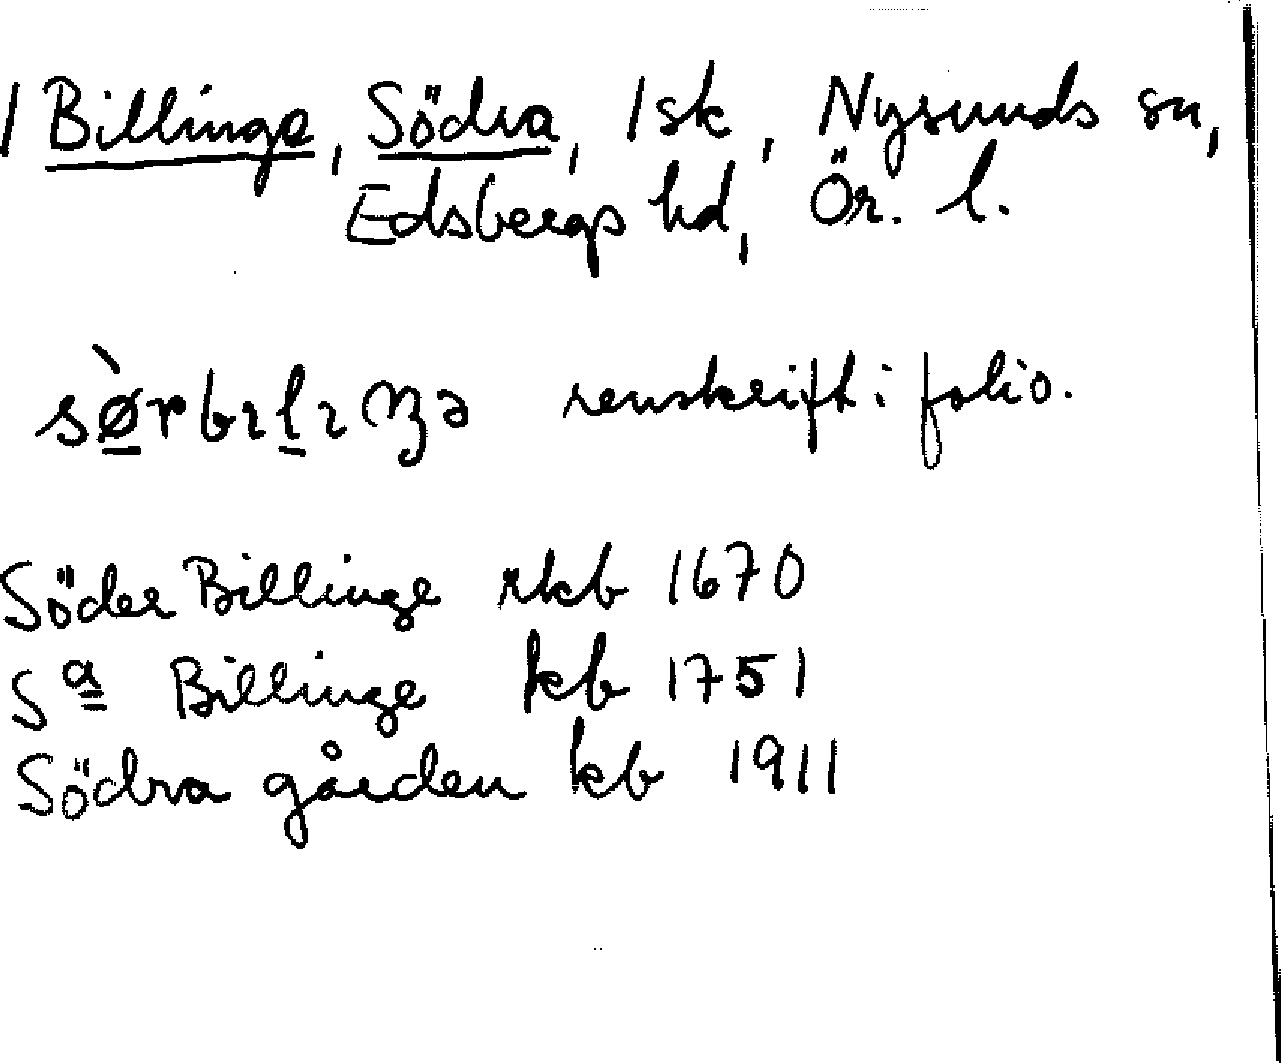 / Billinge, Södra, /sk, Nysunds sn,
Edsbergs hd, Ör. l.
renskrift i folio.
Söder Billinge rkb 1670
Sa Billinge kb 1751
Södra gården kb 1911